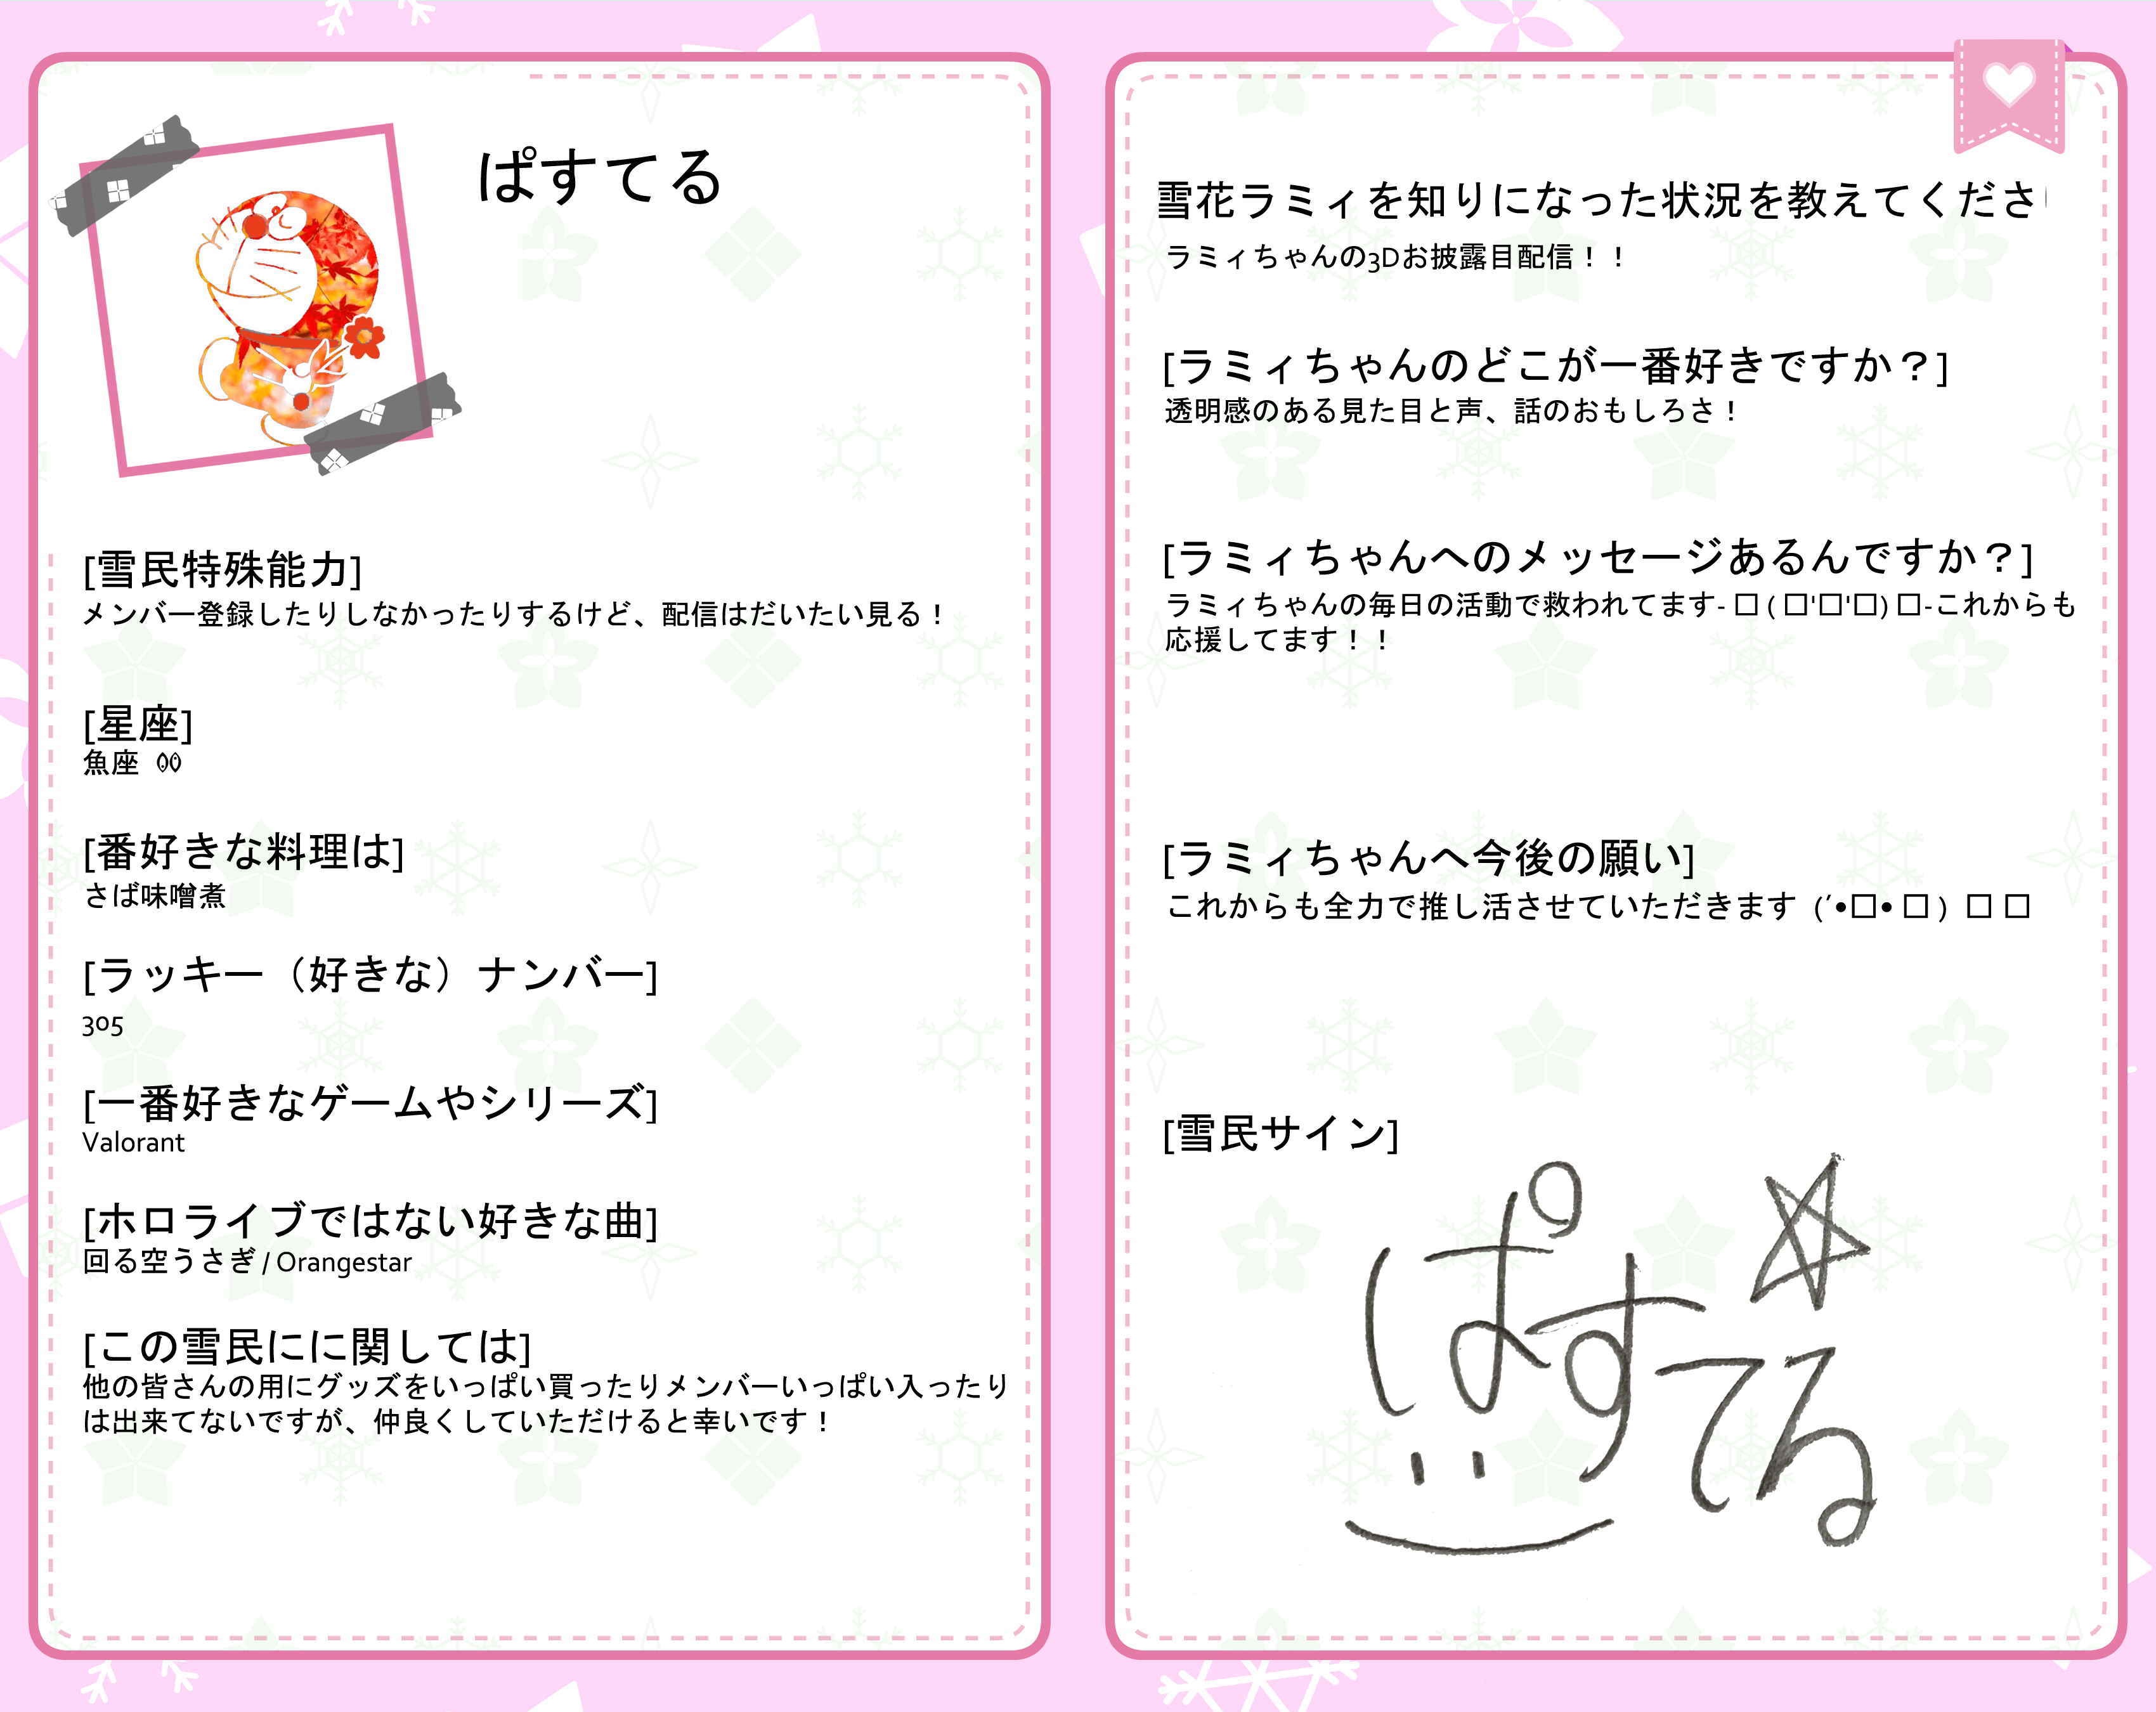 ぱすてる
[雪民特殊能力]
メンバー登録したりしなかったりするけど、配信はだいたい見る！
[星座]
魚座
[番好きな料理は]
さば味噌煮
[ラッキー（好きな）ナンバー]
305
[一番好きなゲームやシリーズ]
Valorant
[ホロライブではない好きな曲]
回る空うさぎ / Orangestar
[この雪民にに関しては]
他の皆さんの用にグッズをいっぱい買ったりメンバーいっぱい入ったり
は出来てないですが、仲良くしていただけると幸いです！
雪花ラミィを知りになった状況を教えてくださ
ラミィちゃんの3Dお披露目配信！！
[ラミィちゃんのどこが一番好きですか？]
透明感のある見た目と声、話のおもしろさ！
[ラミィちゃんへのメッセージあるんですか？]
ラミィちゃんの毎日の活動で救われてます- □ ( □'□'□) □-これからも
応援してます！！
[ラミィちゃんへ今後の願い]
これからも全力で推し活させていただきます (´•□• □ ) □ □
[雪民サイン]
ぱすてる